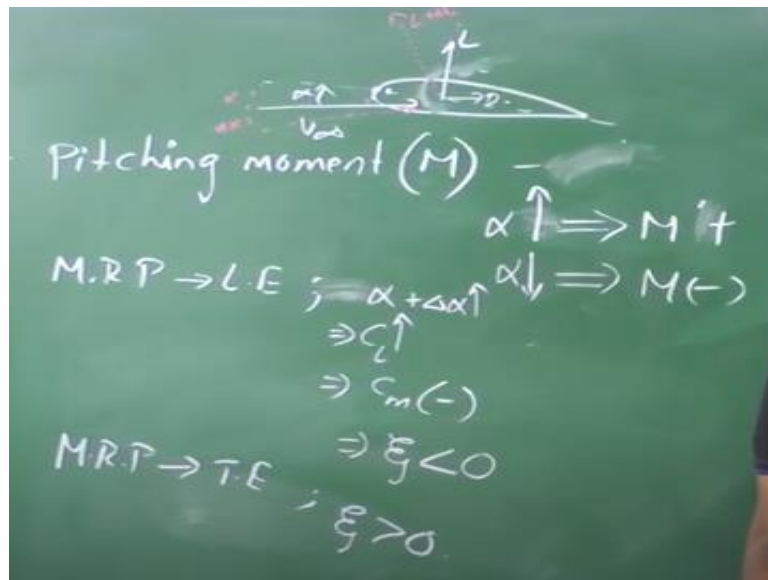 L
α↑
D
V∞
Pitching moment (M) -
α ↑ ⇒ M +
M.R.P → L.E ; α + Δα↑ α↓ ⇒ M(-)
⇒ C_L↑
⇒ C_m(-)
⇒ ξ < 0
M.R.P → T.E ; ξ > 0